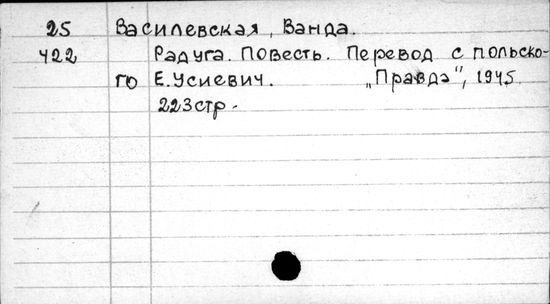 25 Василевская, Ванда.
422 Радуга. Повесть. Перевод с польско-
го Е. Усиевич. „Правда", 1945
223 стр.